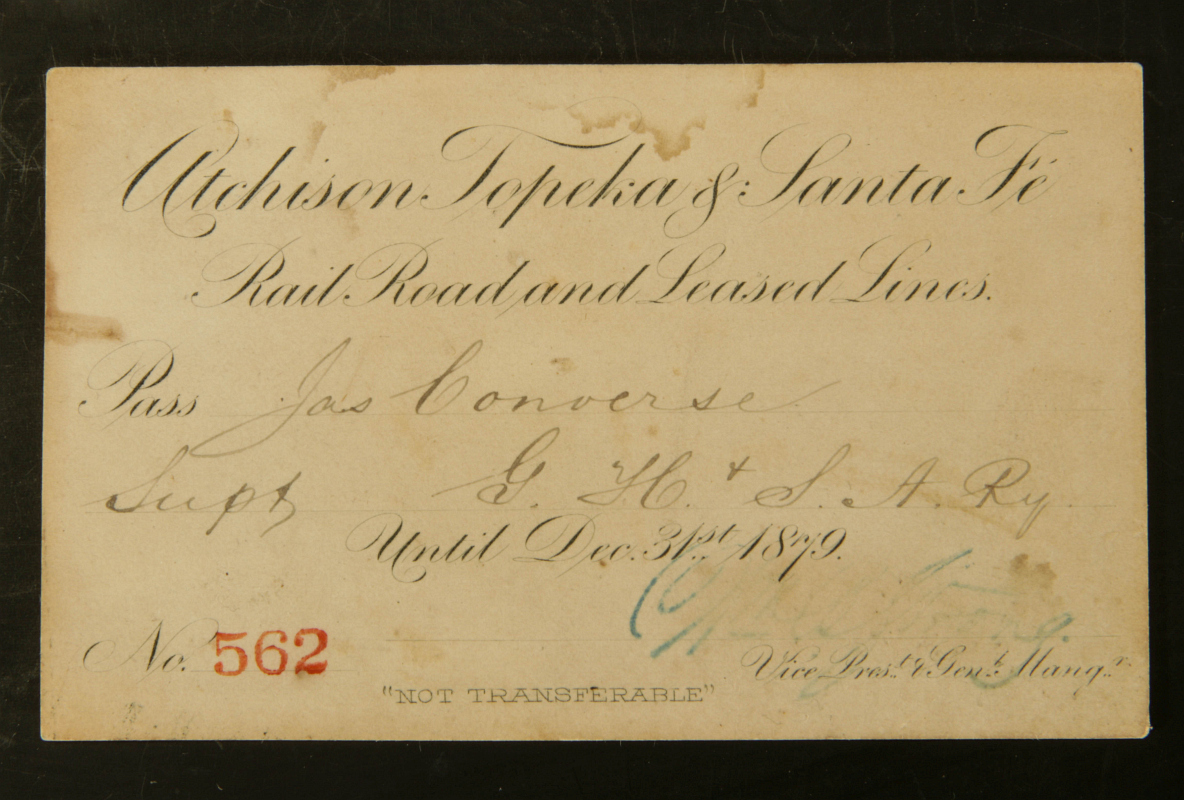 Atchison Topeka & Santa Fé
Rail Road and Leased Lines.
Pass Jas Converse
Supt G. H. & S. A. Ry
Until Dec. 31st 1879.
No. 562
Vice Prest. & Genl. Mangr.
"NOT TRANSFERABLE"